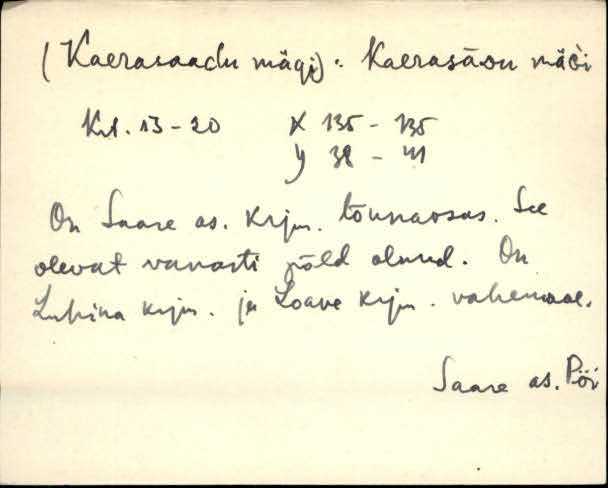 (Kaerasaadu mägi): Kaerasāou mäɢ̀i
Krt. 13-20 X 135 - 135
y 38 - 41
On Saare as. Krjm. tounaosas. See
olevat vanasti põld olnud. On
krjm. ja Loave krjm. vahemaal.
Saare as. Pöi